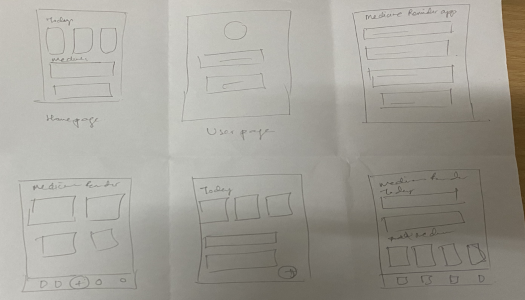 Today
Medicines
Home page
User page
Medicine Reminder app
Medicine Reminder
Today
Medicine Reminder
Today